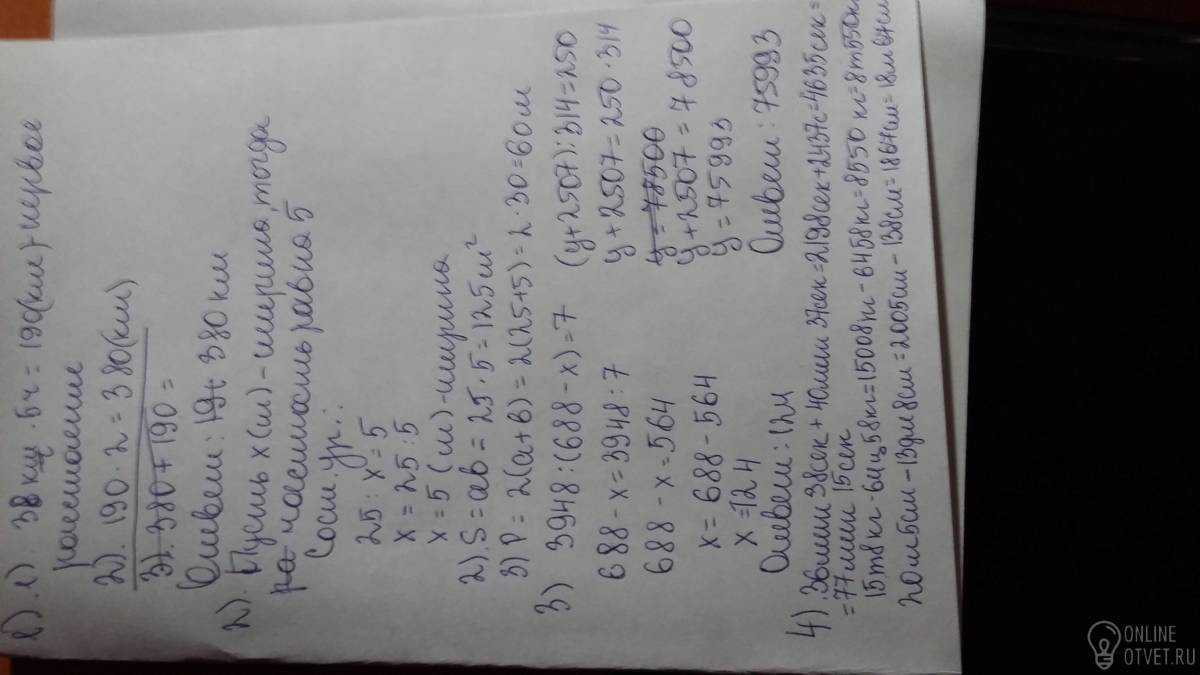 1). 1). 38 км · 5ч = 190(км) – первое
расстояние
2). 190 · 2 = 380(км)
3). 380 + 190 =
Ответ: 380 км
2). Пусть x (м) – ширина, тогда
частность равна 5
Сост. ур.:
25 : x = 5
x = 25 : 5
x = 5 (м) – ширина
2). S = ab = 25 · 5 = 125 м²
3) P = 2(a+b) = 2(25+5) = 2 · 30 = 60 м
3) 3948 : (688 - x) = 7
688 - x = 3948 : 7
688 - x = 564
x = 688 - 564
x = 124
Ответ: 124
(y + 2507) : 314 = 250
y + 2507 = 250 · 314
y = 78500
y + 2507 = 78500
y = 75993
Ответ: 75993
4). 36мин 38сек + 40мин 37сек = 2198сек + 2437с = 4635сек =
= 77мин 15сек
15т8кг - 6ц58кг = 15008кг - 6458кг = 8550 кг = 8т550кг
20м5см - 13дм8см = 2005см - 138см = 1867см = 18м67см
ONLINE
OTVET.RU